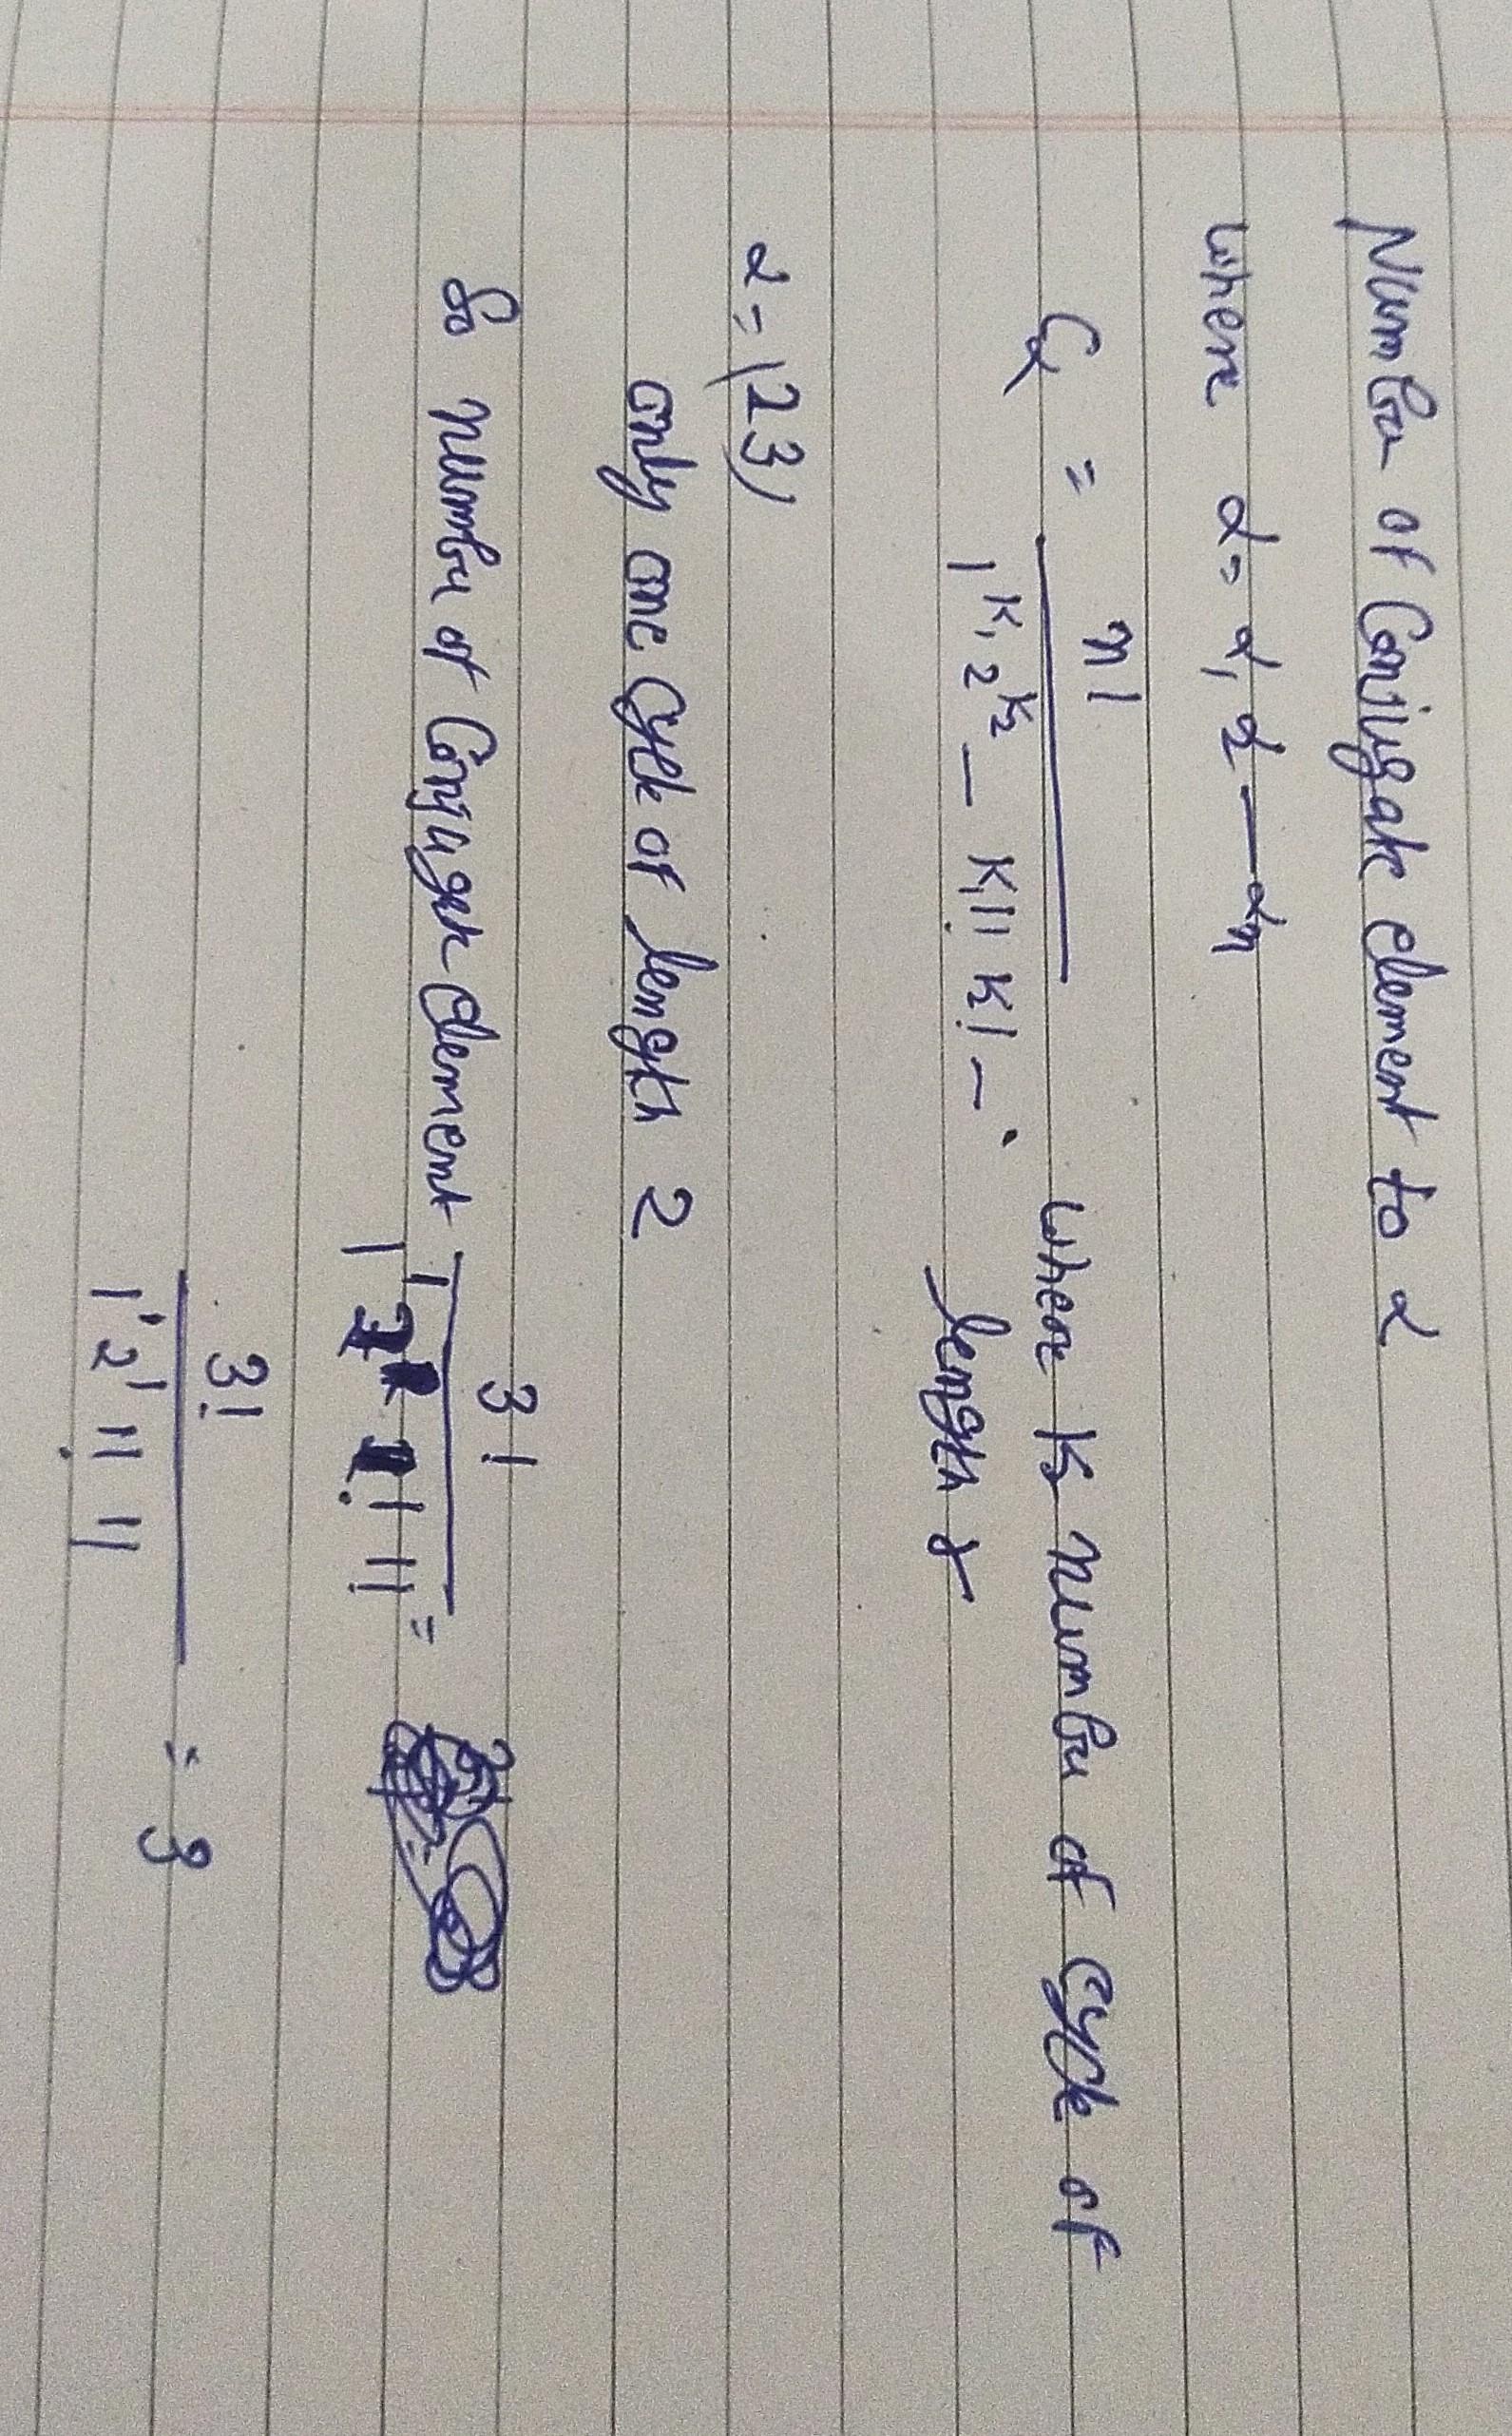 Number of Conjugate element to α
where α = α₁ α₂ — αₙ
Cα = n! / 1^K₁ 2^K₂ — K₁! K₂! — where Kᵣ number of Cycle of length r
α = (23)
only one Cycle of length 2
So number of Conjugate element 3! / 1! 1! =
3! / 1¹ 2¹ 1! 1! = 3